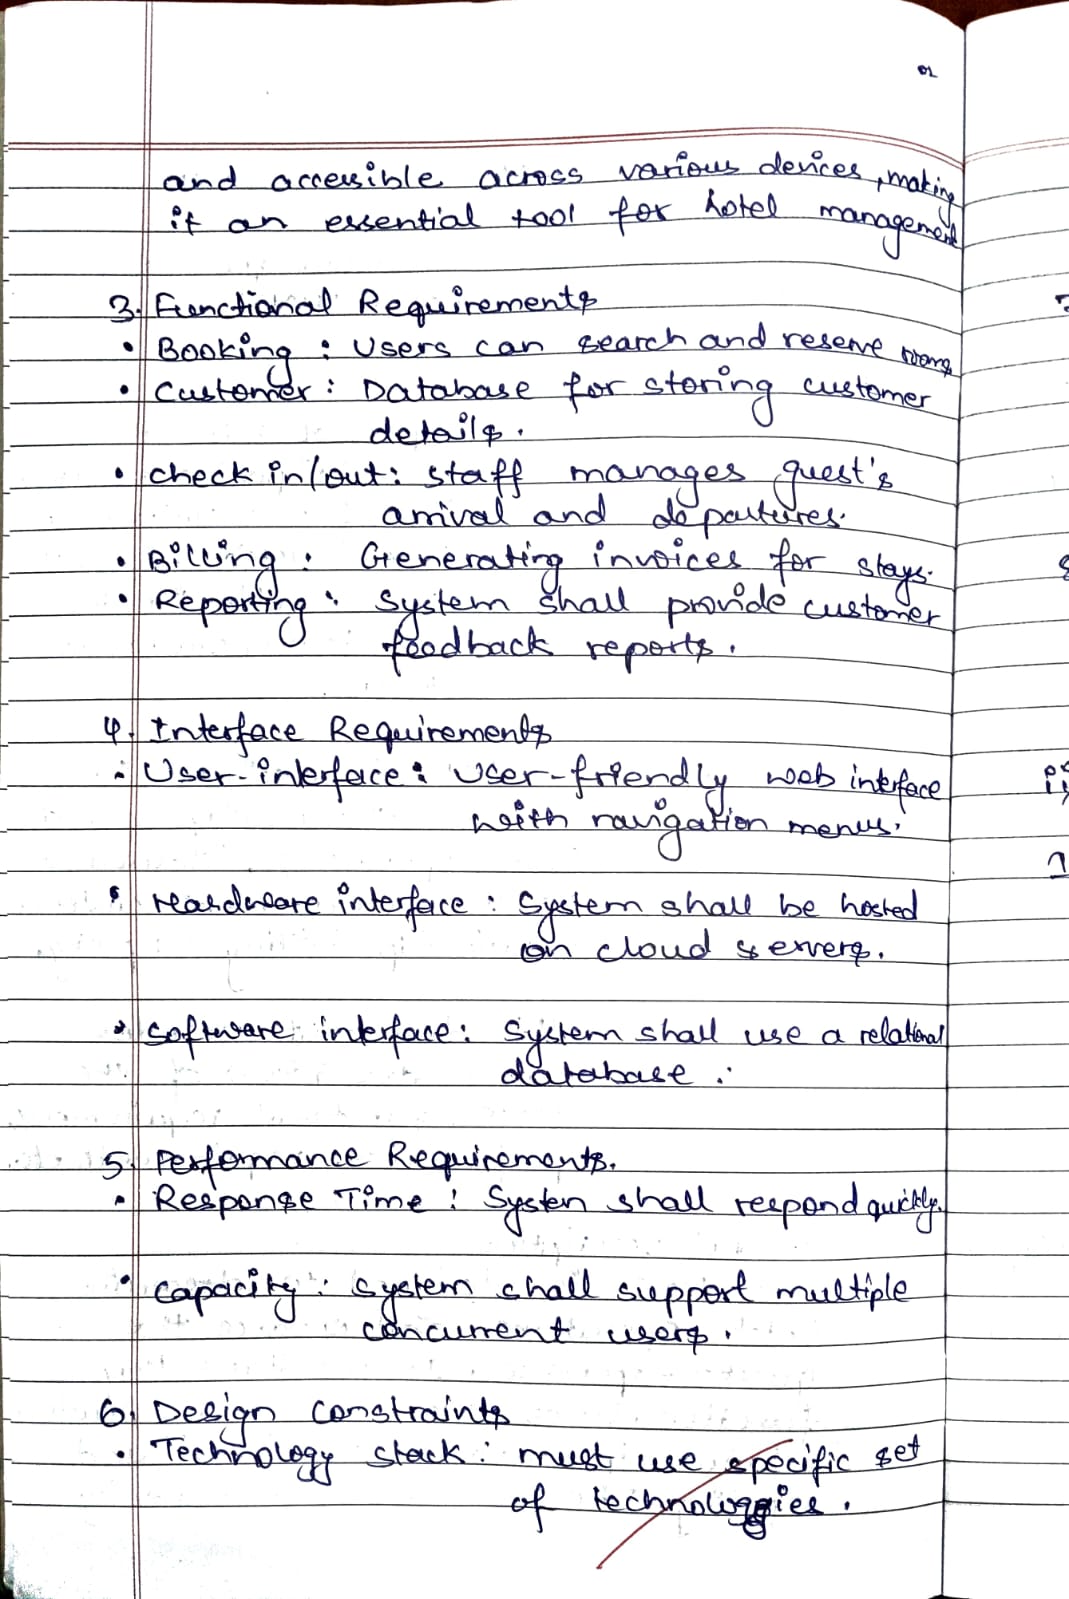 02
and accessible across various devices, making
it an essential tool for hotel management
3. Functional Requirements
• Booking : Users can search and reserve rooms
• Customer : Database for storing customer
details.
• check in/out : staff manages guest's
arrival and departures.
• Billing : Generating invoices for stays.
• Reporting : System shall provide customer
feedback reports.
4. Interface Requirements
• User-interface : User-friendly web interface
with navigation menus.
• Hardware interface : System shall be hosted
on cloud servers.
• Software interface : System shall use a relational
database.
5. Performance Requirements.
• Response Time : System shall respond quickly.
• Capacity : System shall support multiple
concurrent users.
6. Design Constraints
• Technology stack : must use specific set
of technologies.